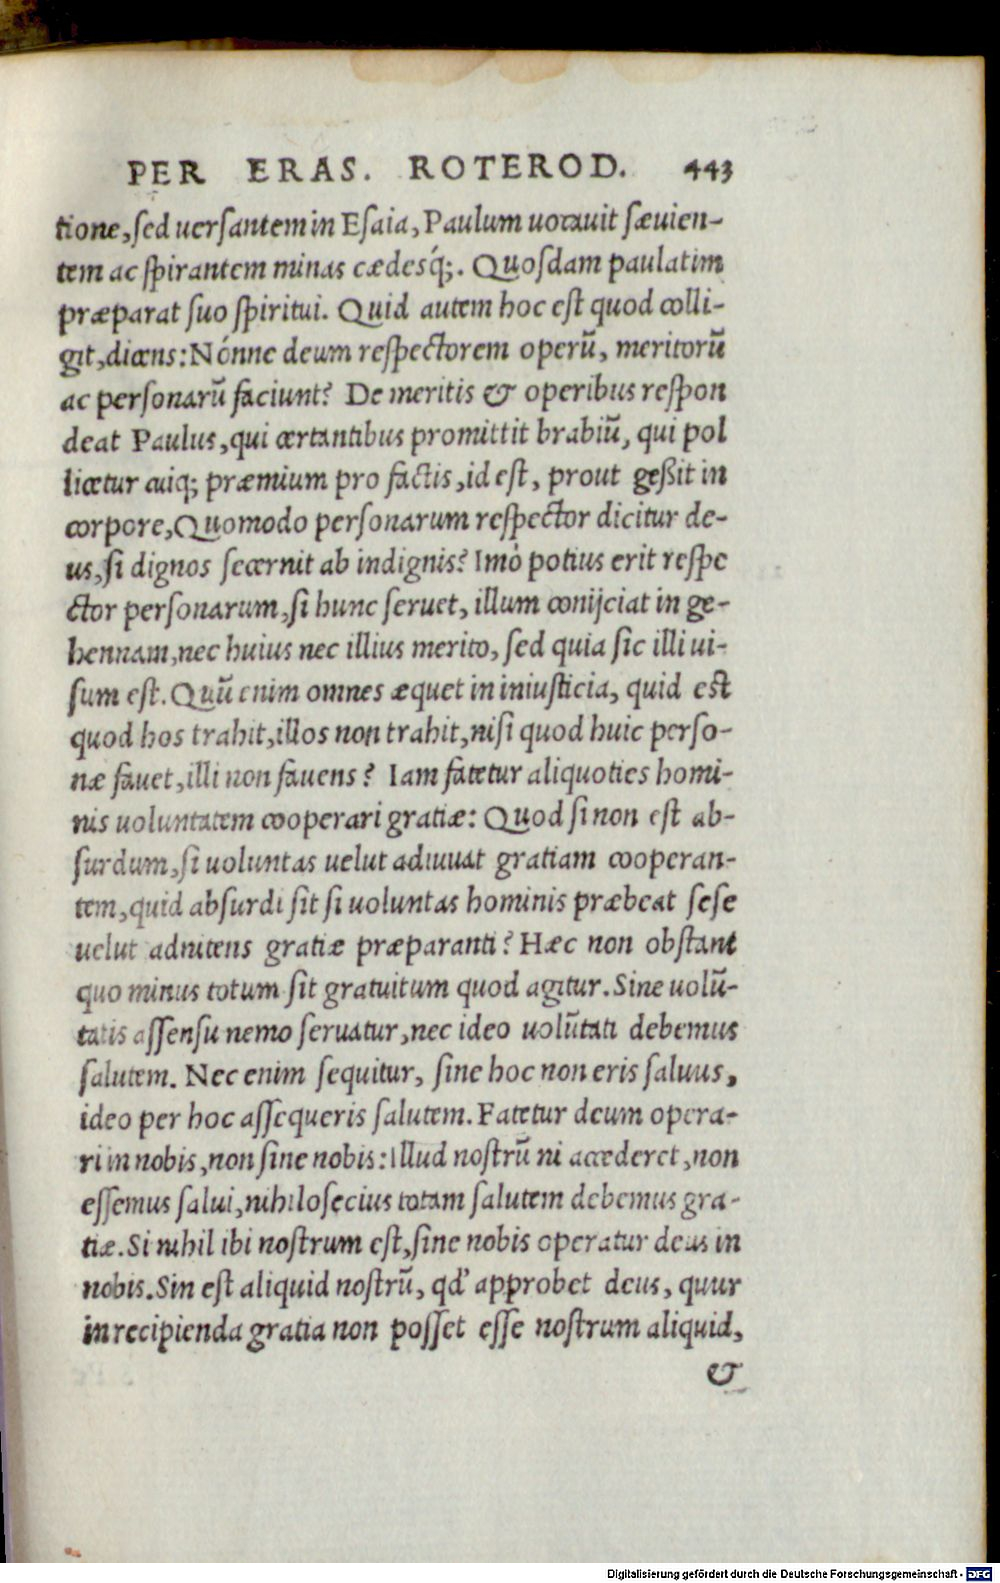 PER ERAS. ROTEROD. 443
tione, sed uersantem in Esaia, Paulum uocauit sæuien-
tem ac spirantem minas cædesq́;. Quosdam paulatim
præparat suo spiritui. Quid autem hoc est quod colli-
git, dicens: Nónne deum respectorem operū, meritorū
ac personarū faciunt? De meritis & operibus respon
deat Paulus, qui certantibus promittit brabiū, qui pol
licetur cuiq; præmium pro factis, id est, prout geßit in
corpore, Quomodo personarum respector dicitur de-
us, si dignos secernit ab indignis? Imò potius erit respe
ctor personarum, si hunc seruet, illum conijciat in ge-
hennam, nec huius nec illius merito, sed quia sic illi ui-
sum est. Quū enim omnes æquet in iniusticia, quid est
quod hos trahit, illos non trahit, nisi quod huic perso-
næ fauet, illi non fauens? Iam fatetur aliquoties homi-
nis uoluntatem cooperari gratiæ: Quod si non est ab-
surdum, si uoluntas uelut adiuuat gratiam cooperan-
tem, quid absurdi sit si uoluntas hominis præbeat sese
uelut adnitens gratiæ præparanti? Hæc non obstant
quo minus totum sit gratuitum quod agitur. Sine uolū-
tatis assensu nemo seruatur, nec ideo uolūtati debemus
salutem. Nec enim sequitur, sine hoc non eris saluus,
ideo per hoc assequeris salutem. Fatetur deum opera-
ri in nobis, non sine nobis: Illud nostrū ni accederet, non
essemus salui, nihilosecius totam salutem debemus gra-
tiæ. Si nihil ibi nostrum est, sine nobis operatur deus in
nobis. Sin est aliquid nostrū, qd' approbet deus, quur
in recipienda gratia non posset esse nostrum aliquid,
&
Digitalisierung gefördert durch die Deutsche Forschungsgemeinschaft - DFG